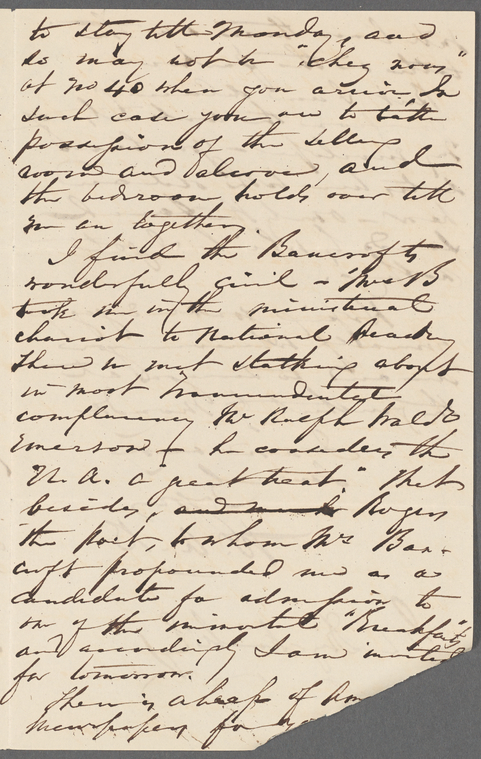 to stay till Monday, and
so may not be "chez nous"
at No 40 when you arrive. In
such case you are to take
possession of the sitting
room and alcove, and
the bedroom holds over till
we are together.
I find the Bancrofts
wonderfully civil – Mrs B
took me in the ministerial
chariot to National Academy
there we met stalking about
in most transcendental
complacency Mr Ralph Waldo
Emerson – he considers the
"N. A. a great treat." Met
besides, Rogers
the Poet, to whom Mrs Ban-
croft propounded me as a
candidate for admission to
one of the immortal "Breakfasts,"
and accordingly I am invited
for tomorrow.
There is a heap of Am
newspapers for